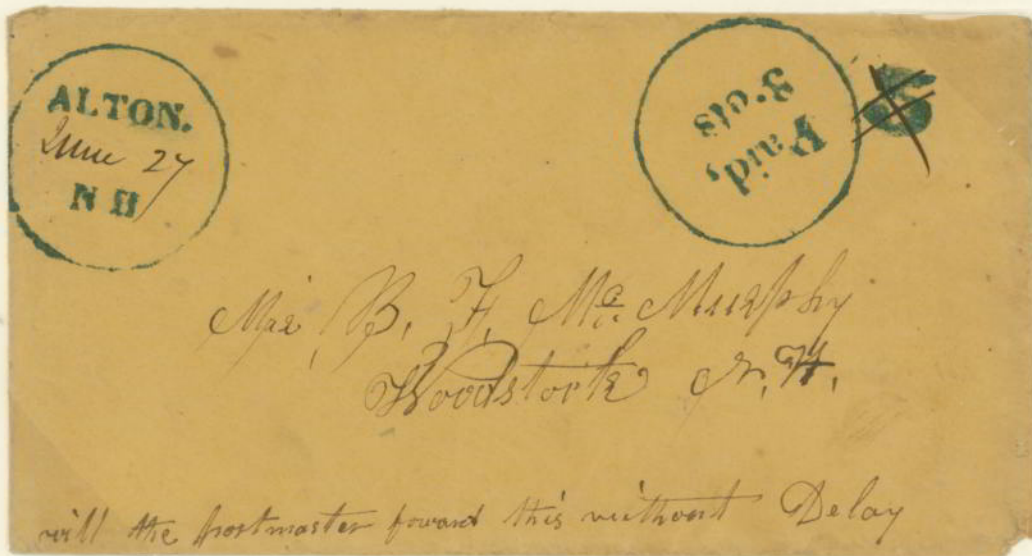 ALTON.
June 27
N H
Paid,
3 cts
5
Mr B. F. Mc Murphy
Woodstock N. H.
will the postmaster foward this without Delay